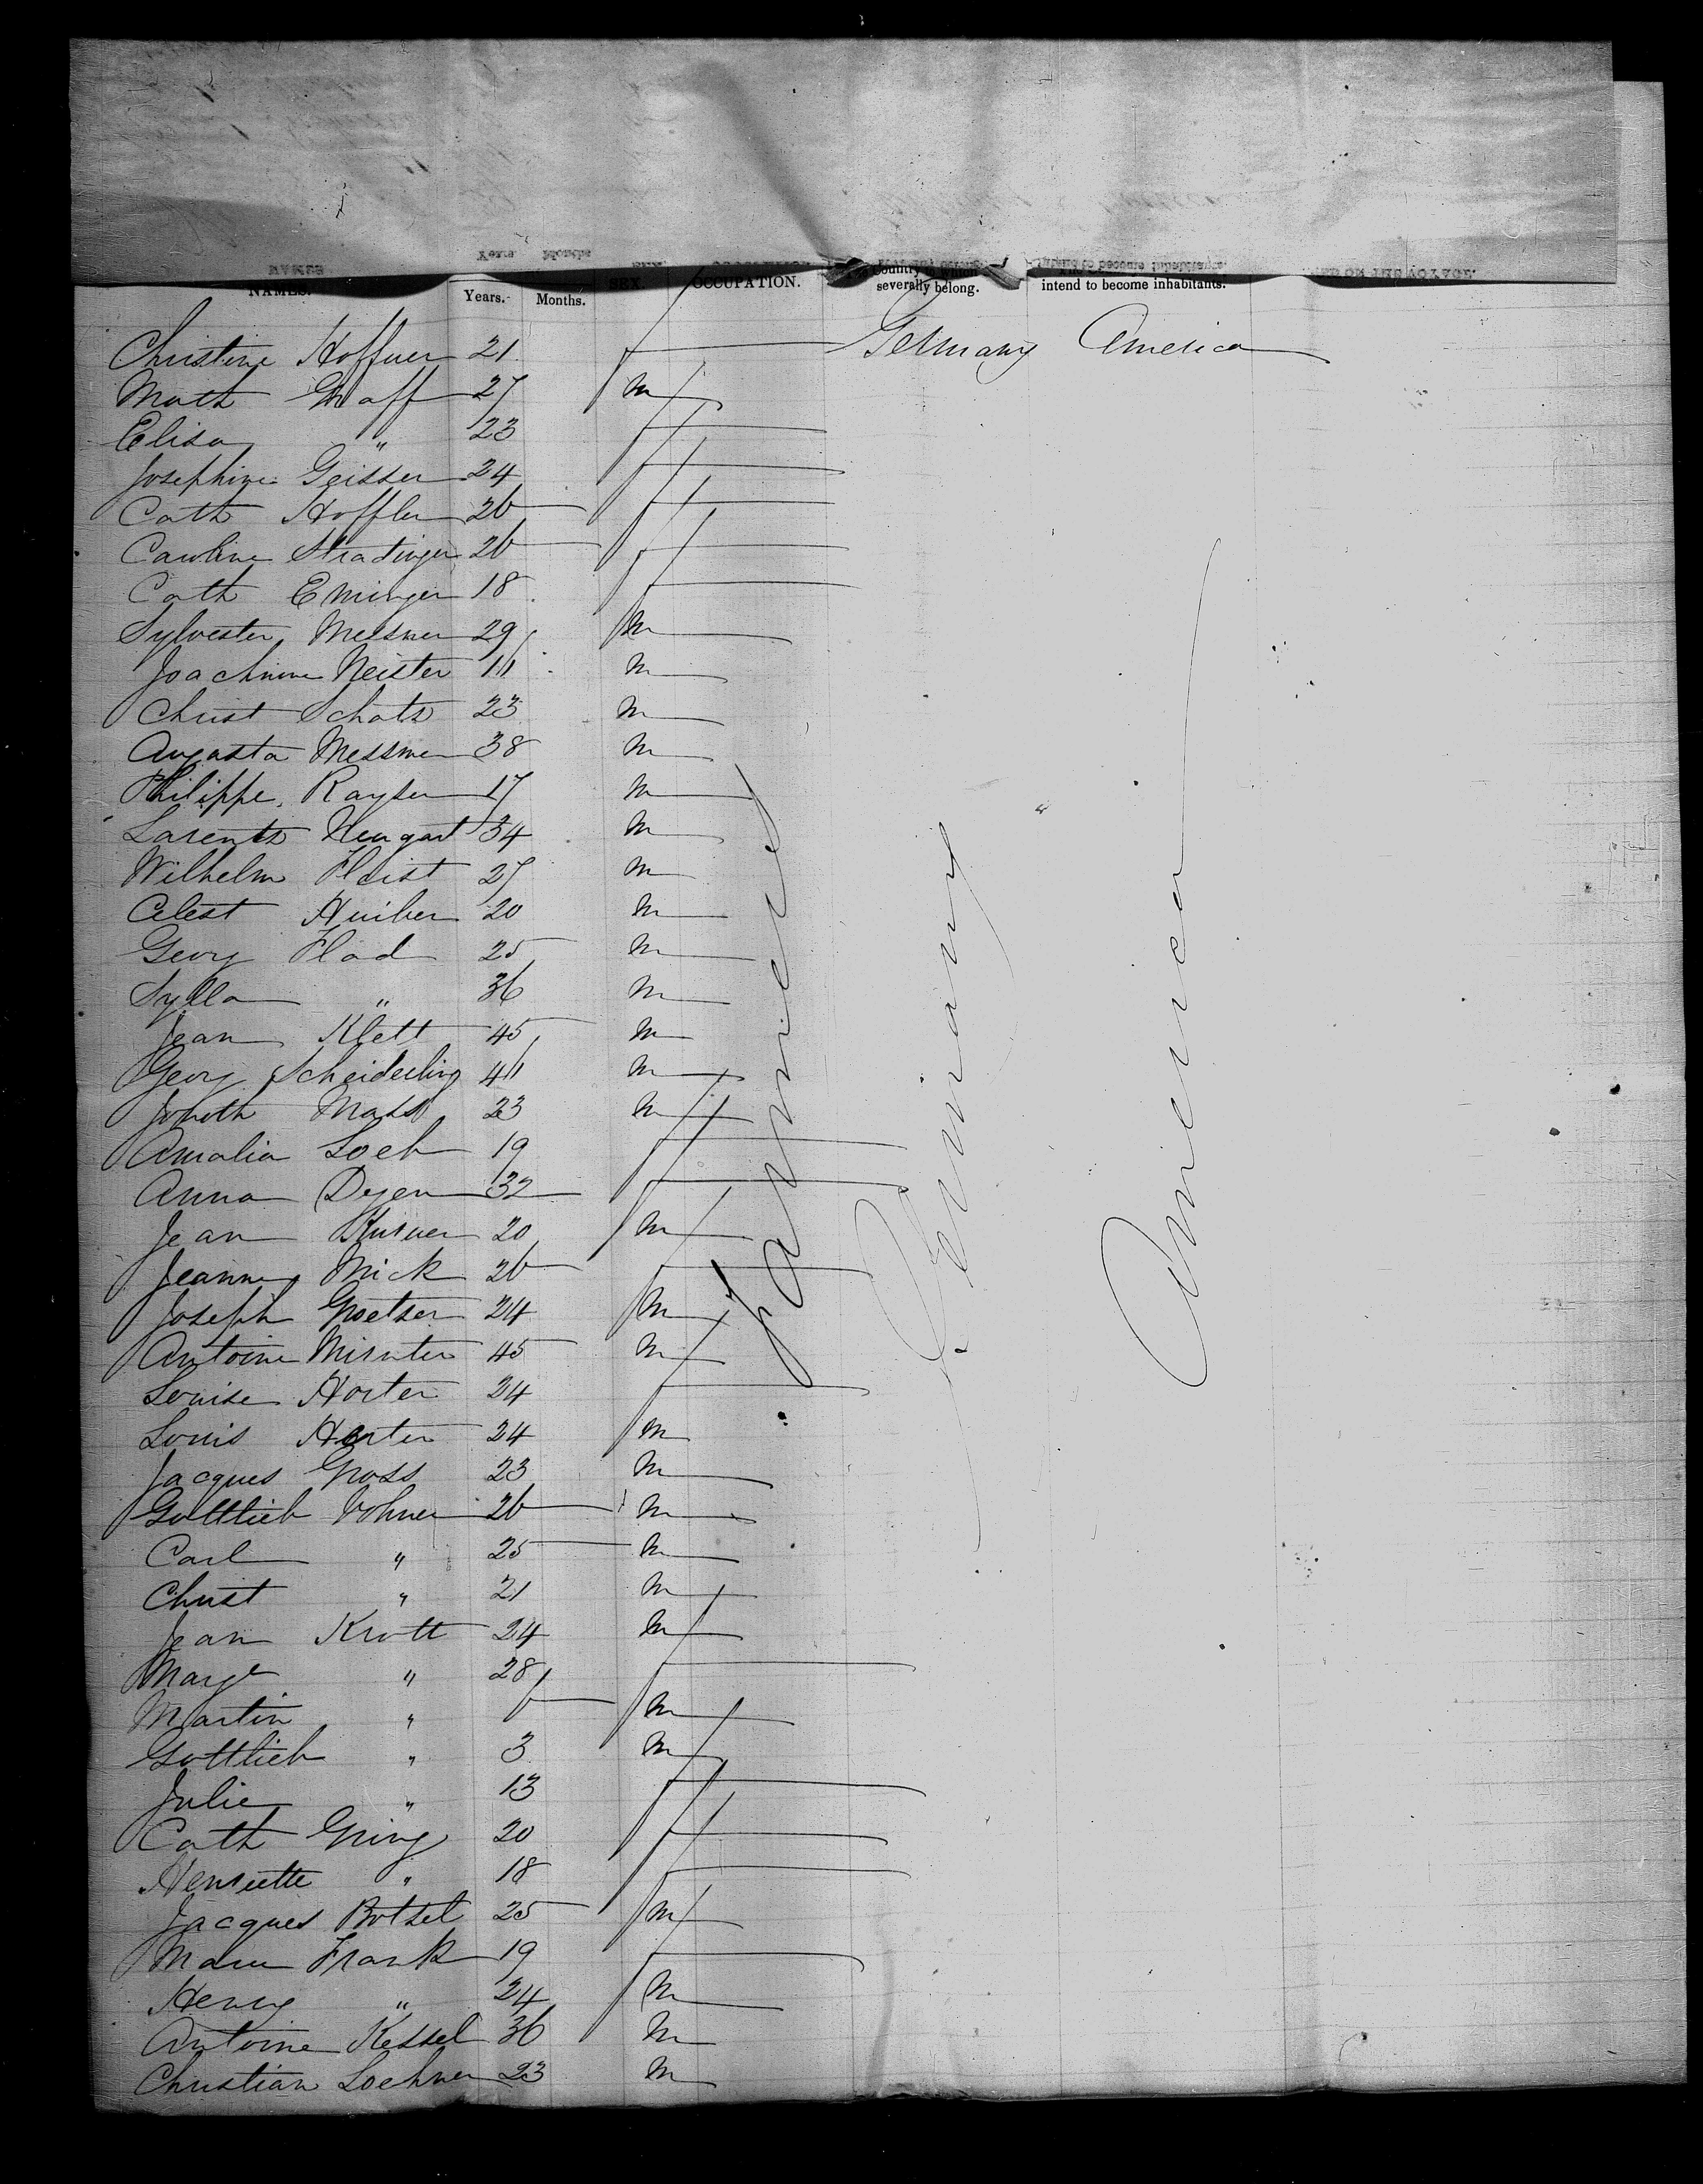 NAMES. Years. Months. SEX. OCCUPATION. Country to which severally belong. intend to become inhabitants.
Christine Hoffner 21 f Germany America
Math Graff 27 m
Elisa " 23 f
Josephine Geisser 24 f
Cath Hoffler 26 f
Caroline Stradinger 26 f
Cath Eminger 18 f
Sylvester Messmer 29 m
Joachim Neister 11 m
Christ Schatz 23 m
Augusta Messmer 38 m
Philippe Rayser 17 m
Larentz Neugart 34 m
Wilhelm Fleist 27 m
Celest Huiber 20 m
Georg Flad 25 m
Sylla " 36 m
Jean Klett 45 m
Georg Scheiderling 41 m
Mass 23 m
Amalia Loeb 19 f
Anna Degen 32 f
Jean Kurner 20 m
Jeanne Mick 26 f
Joseph Groetser 24 m
Antoine Minster 45 m
Louise Horter 24 f
Louis Horter 24 m
Jacques Gross 23 m
Gottlieb Vohner 26 m
Carl " 25 m
Christ " 21 m
Jean Krott 24 m
Marge " 28 f
Martin " 6 m
Gottlieb " 3 m
Julie " 13 f
Cath Gring 20 f
Henriette " 18 f
Jacques Botzet 25 m
Marie Frank 19 f
Henry " 24 m
Antoine Kessel 36 m
Christian Loehner 23 m
farmers
Germany
America